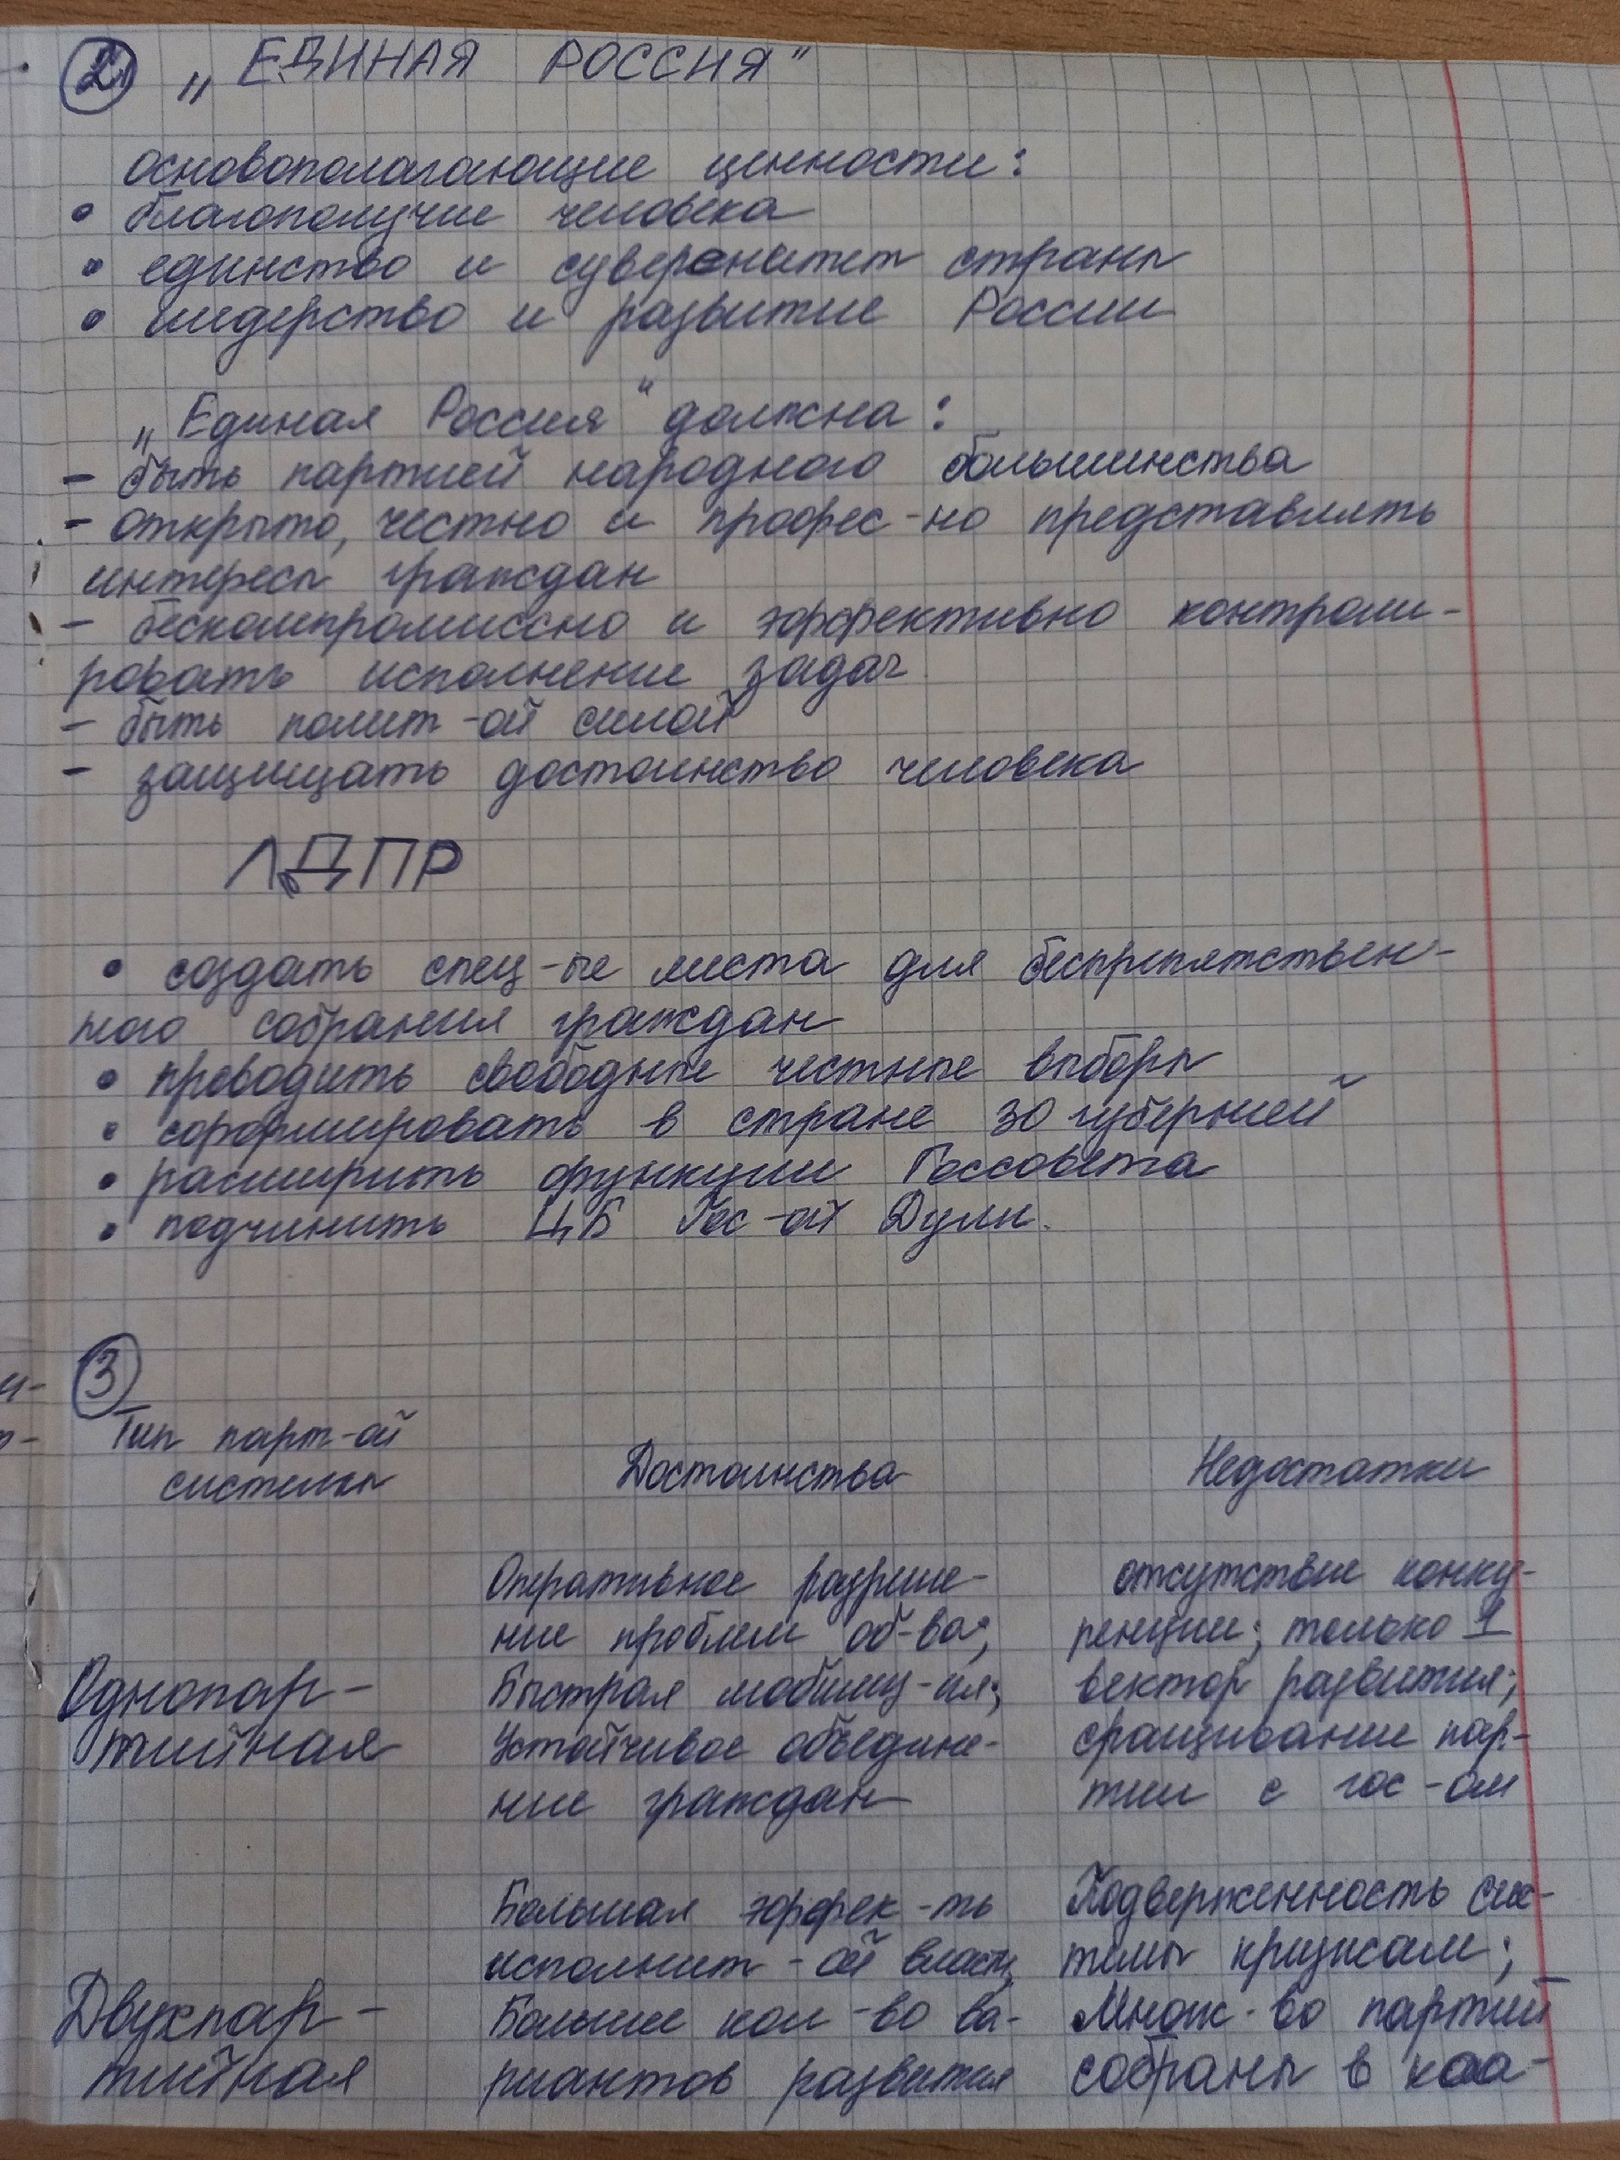 2. „ЕДИНАЯ РОССИЯ"
основополагающие ценности:
• благополучие человека
• единство и суверенитет страны
• лидерство и развитие России
„Единая Россия" должна:
- быть партией народного большинства
- открыто, честно и профес-но представлять
интересы граждан
- бескомпромиссно и эффективно контроли-
ровать исполнение задач
- быть полит-ой силой
- защищать достоинство человека
ЛДПР
• создать спец-ые места для беспрепятствен-
ного собрания граждан
• проводить свободные честные выборы
• сформировать в стране 30 губерний
• расширить функции Госсовета
• подчинить ЦБ Гос-ой Думы.
3
Тип парт-ой
системы
Достоинства
Недостатки
Однопар-
тийная
Оперативное разреше-
ние проблем об-ва;
Быстрая мобилиз-ия;
Устойчивое объедине-
ние граждан
отсутствие конку-
ренции; только 1
вектор развития;
сращивание пар-
тии с гос-ом
Двухпар-
тийная
Большая эффек-ть
исполнит-ой власти,
Больше кол-во ва-
риантов развития
Подверженность сис-
темы кризисам;
Множ-во партий
собраны в коа-